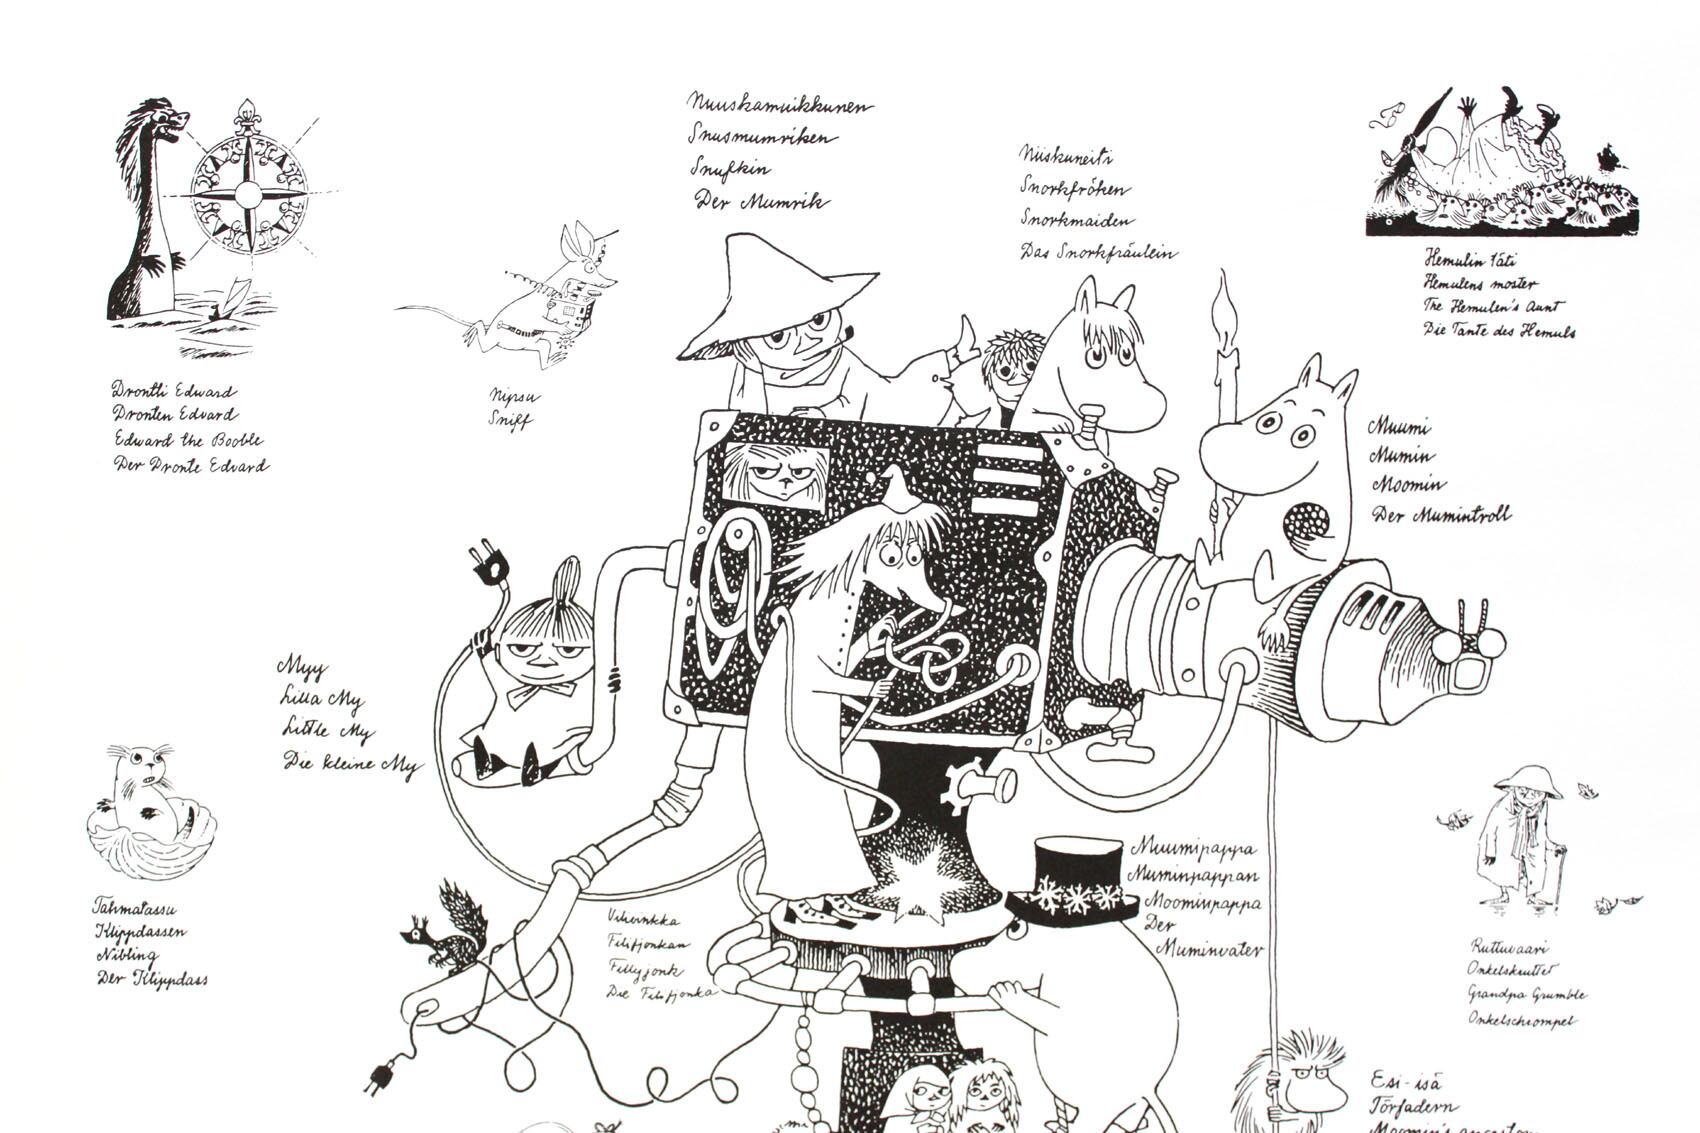 Nuuskamuikkunen
Snusmumriken
Snufkin
Der Mumrik
Niiskuneiti
Snorkfröken
Snorkmaiden
Das Snorkfräulein
Hemulin täti
Hemulens moster
The Hemulen's Aunt
Die Tante des Hemuls
Drontti Edward
Dronten Edvard
Edward the Booble
Der Dronte Edvard
Nipsu
Sniff
Muumi
Mumin
Moomin
Der Mumintroll
Myy
Lilla My
Little My
Die kleine My
Muumipappa
Muminpappan
Moominpappa
Der
Muminvater
Tahmatassu
Klippdassen
Nibling
Der Klippdass
Vilivinkka
Filifjonkan
Fillyjonk
Die Filifjonka
Ruttuvaari
Onkelskruttet
Grandpa Grumble
Onkelschrompel
Esi-isä
Törfadern
Moomin's ancestor